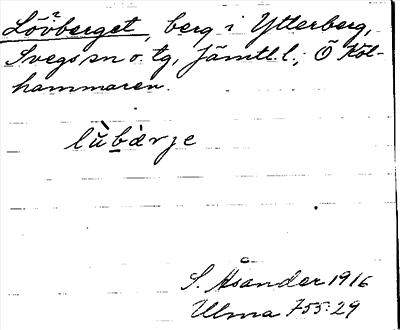 Lövberget, berg i Ytterberg,
Svegs sn o. tg, Jämtl.l.; Ö Kol-
hammaren.
lùbàrje
S. Åsander 1916
Ulma 755:29